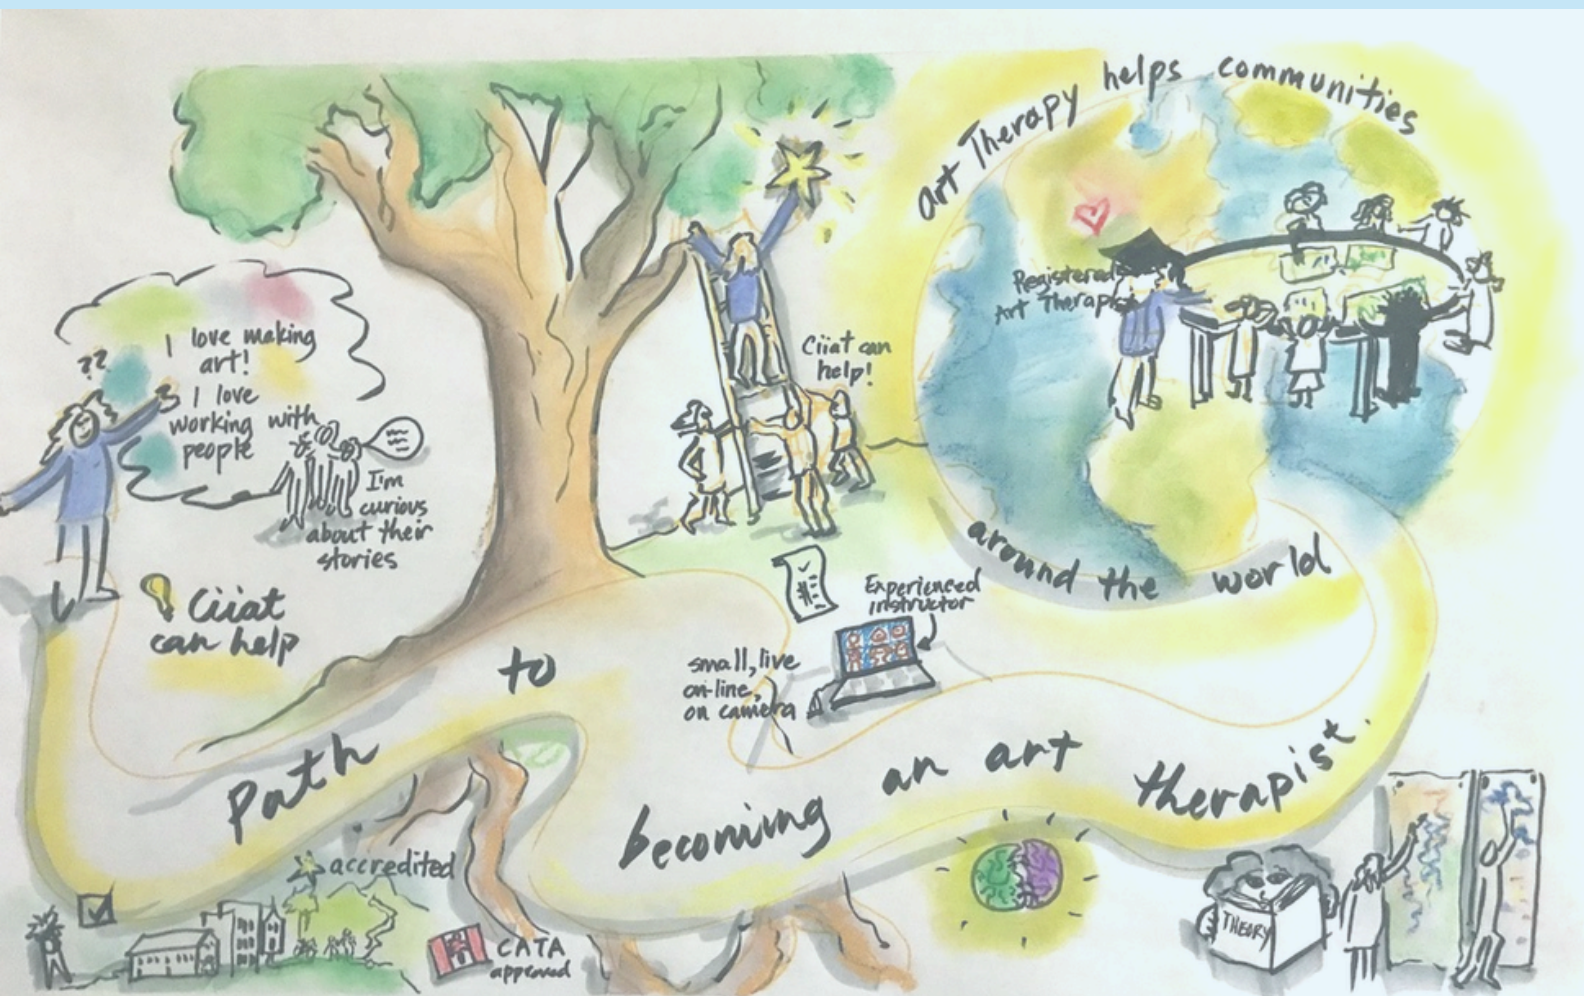 ??
I love making
art!
I love
working with
people
I'm
curious
about their
stories
Ciiat
can help
Ciiat can
help!
Art Therapy helps communities
Registered
Art Therapist
around the world
Experienced
instructor
small, live
on-line,
on camera
Path to becoming an art therapist.
accredited
CATA
approved
THEORY